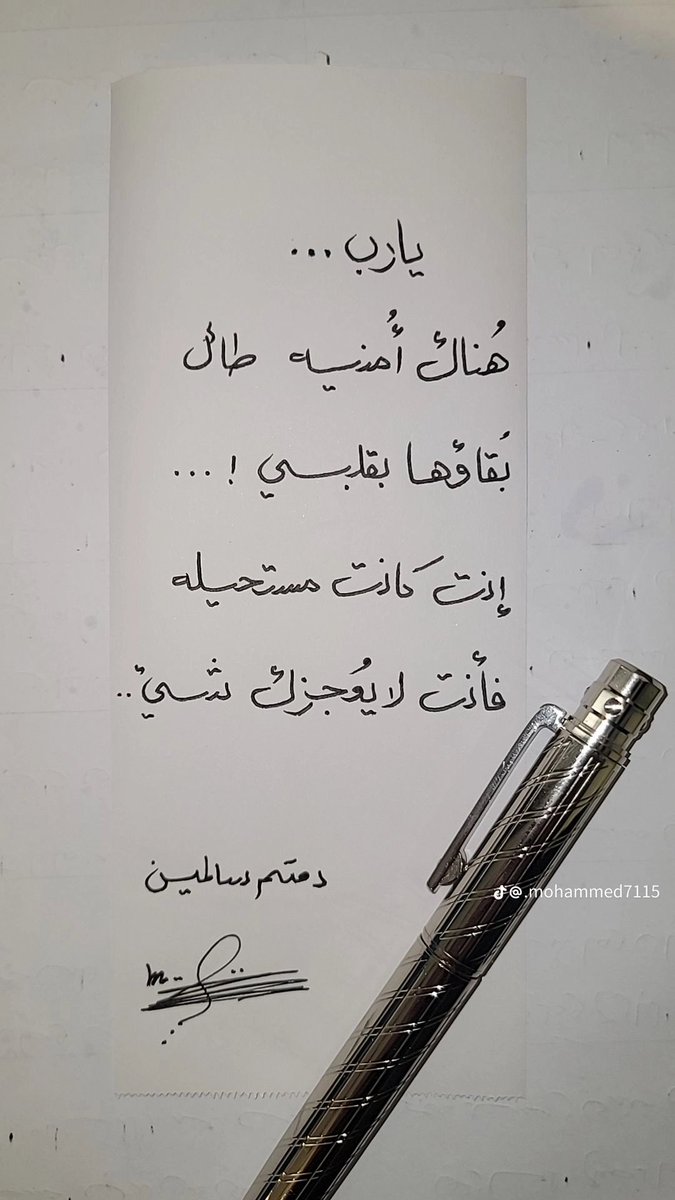 يارب...
هُناك أُمنيه طال
بُقاؤها بقلبي ! ...
إنت كَانت مستحيله
فأنت لا يُوجزك شيئ ..
دمتم سالمين
@.mohammed7115